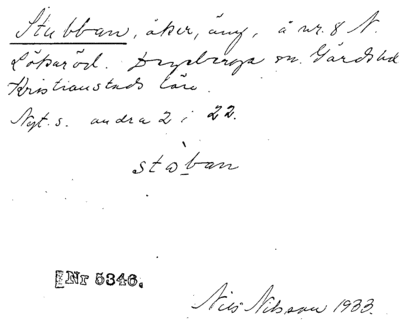 Stubban, åker, äng, å nr. 8 N.
Lökaröd. sn. Gärds hd
Kristianstads län.
Nyt. s. andra 2 i 22.
stòban
Nr 5346.
Nils Nilsson 1933.